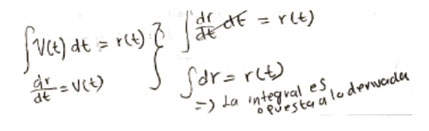 ∫V(t) dt = r(t)
dr/dt = V(t)
∫ dr/dt dt = r(t)
∫dr = r(t)
=> La integral es
opuesta a la derivada